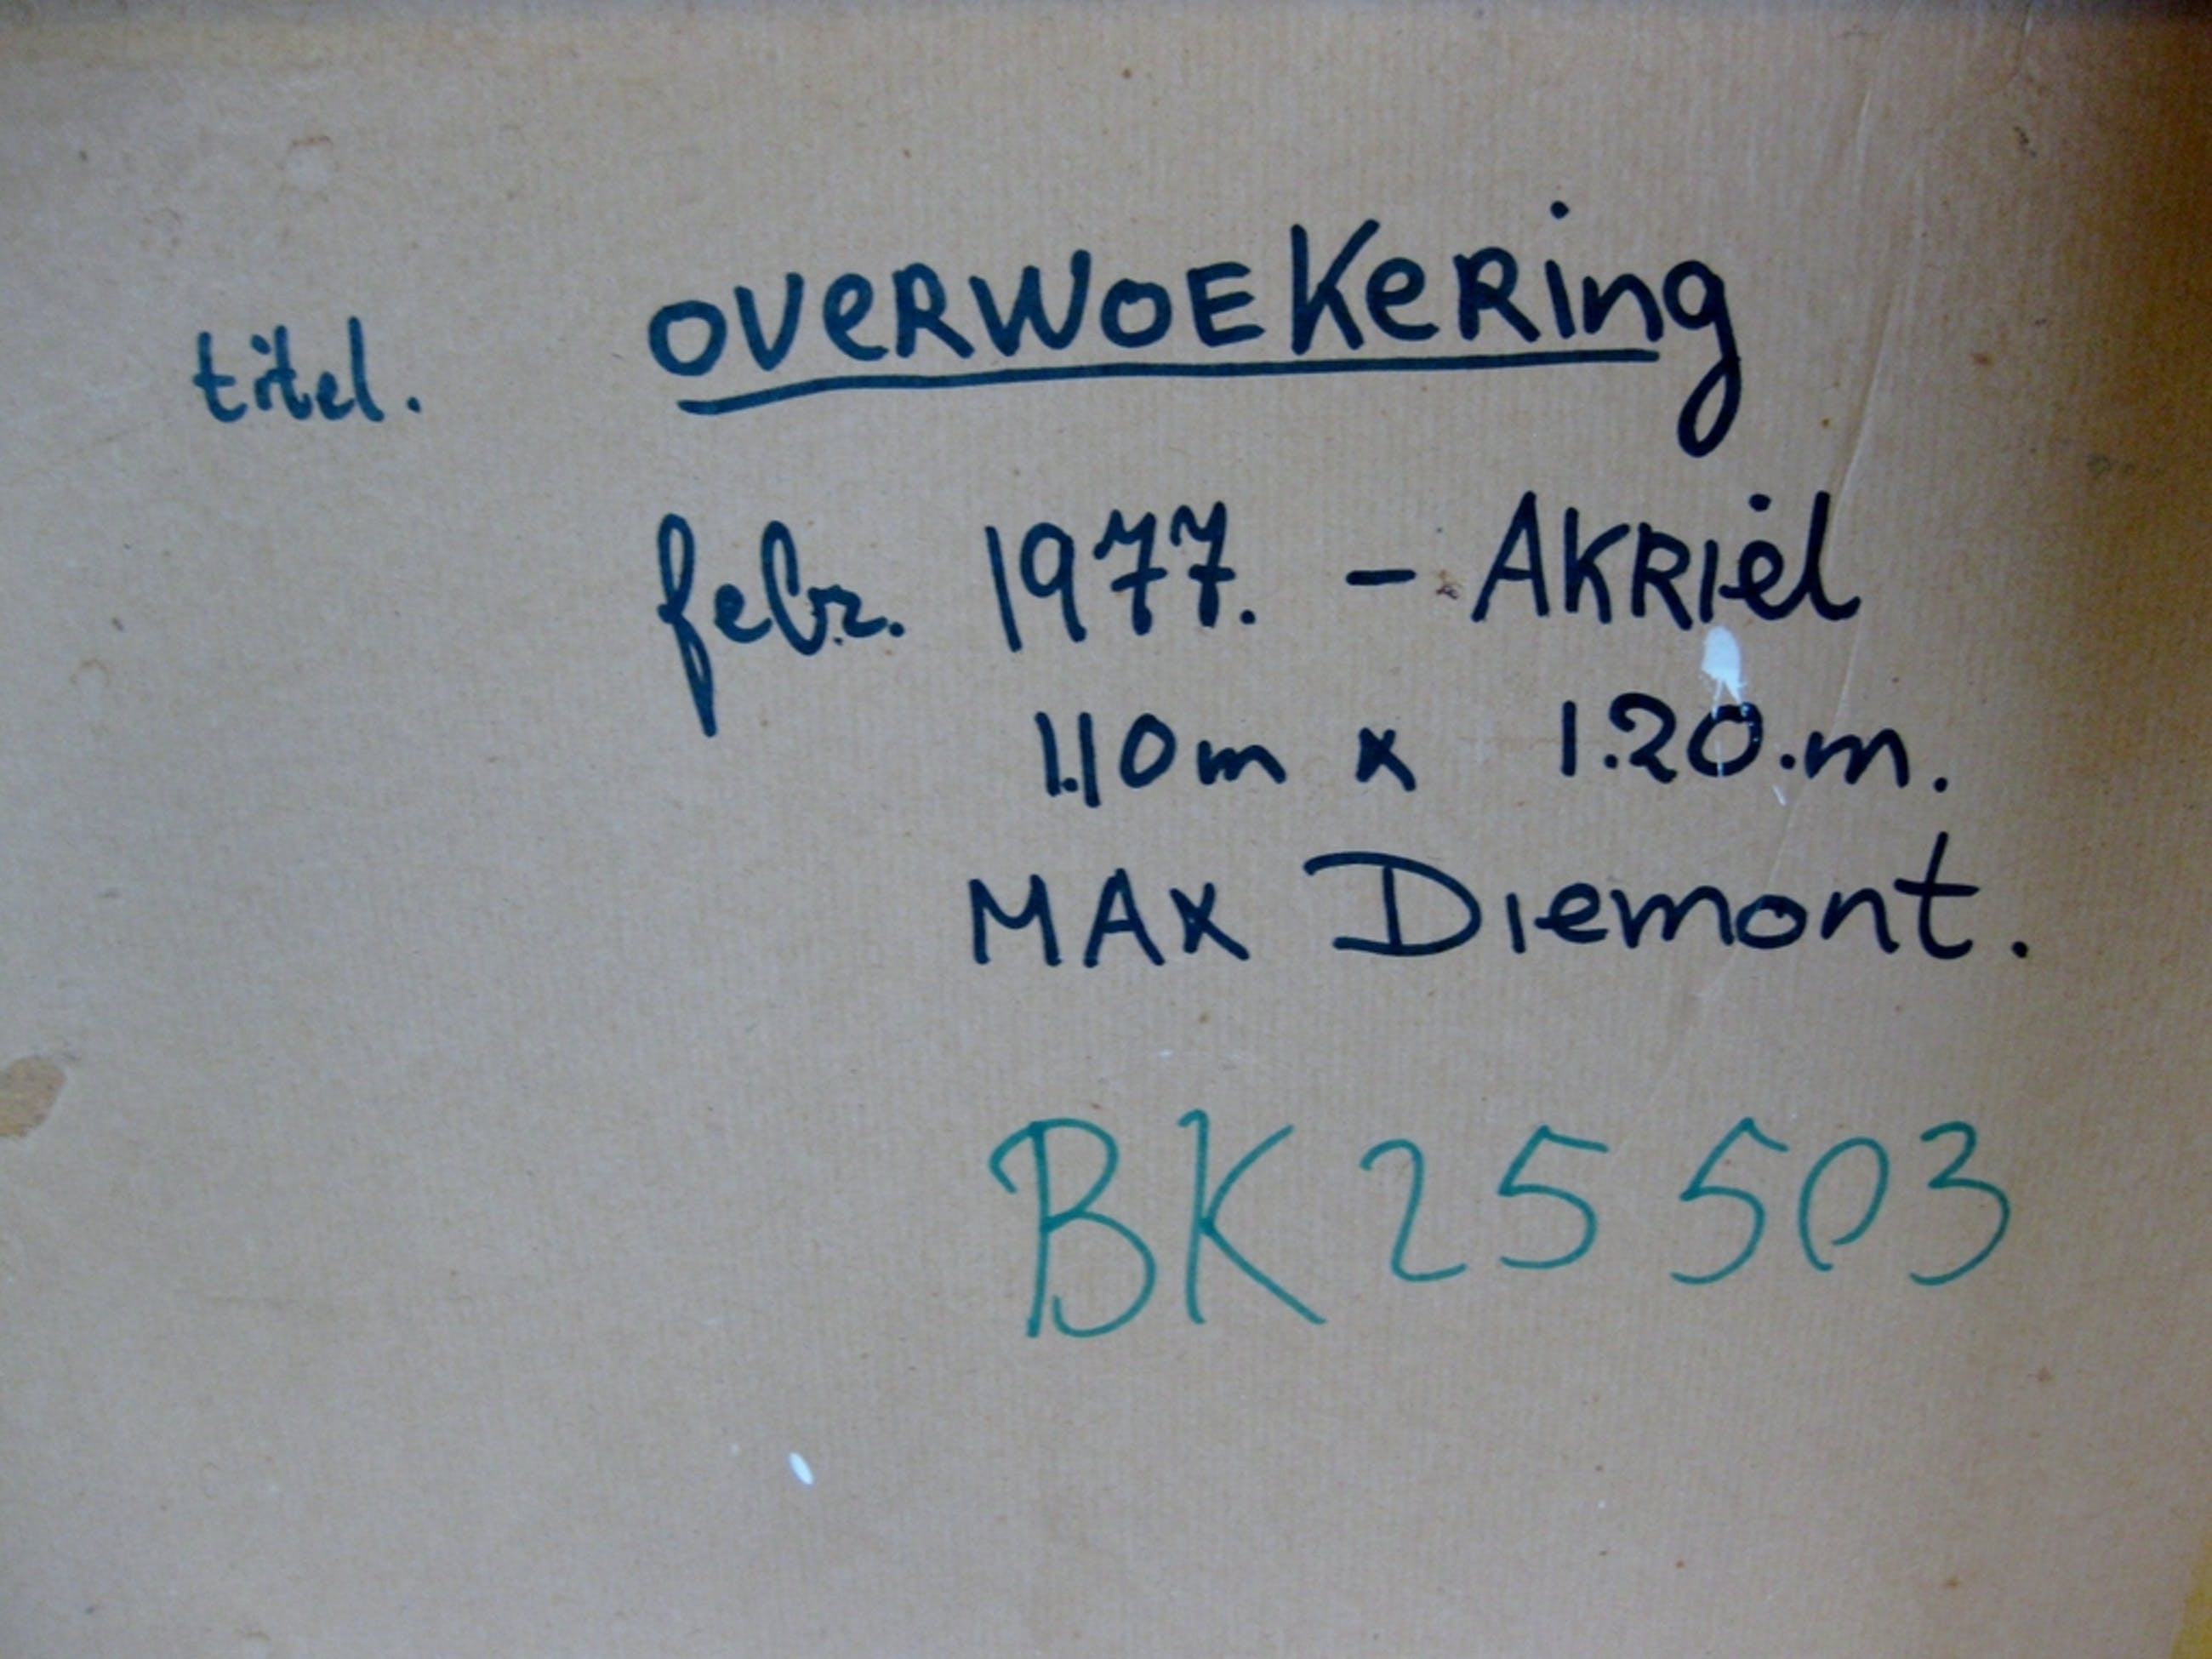 titel. OVERWOEKERing
febr. 1977. - AKRIël
1.10m x 1.20.m.
MAX DIEMONT.
BK 25 503